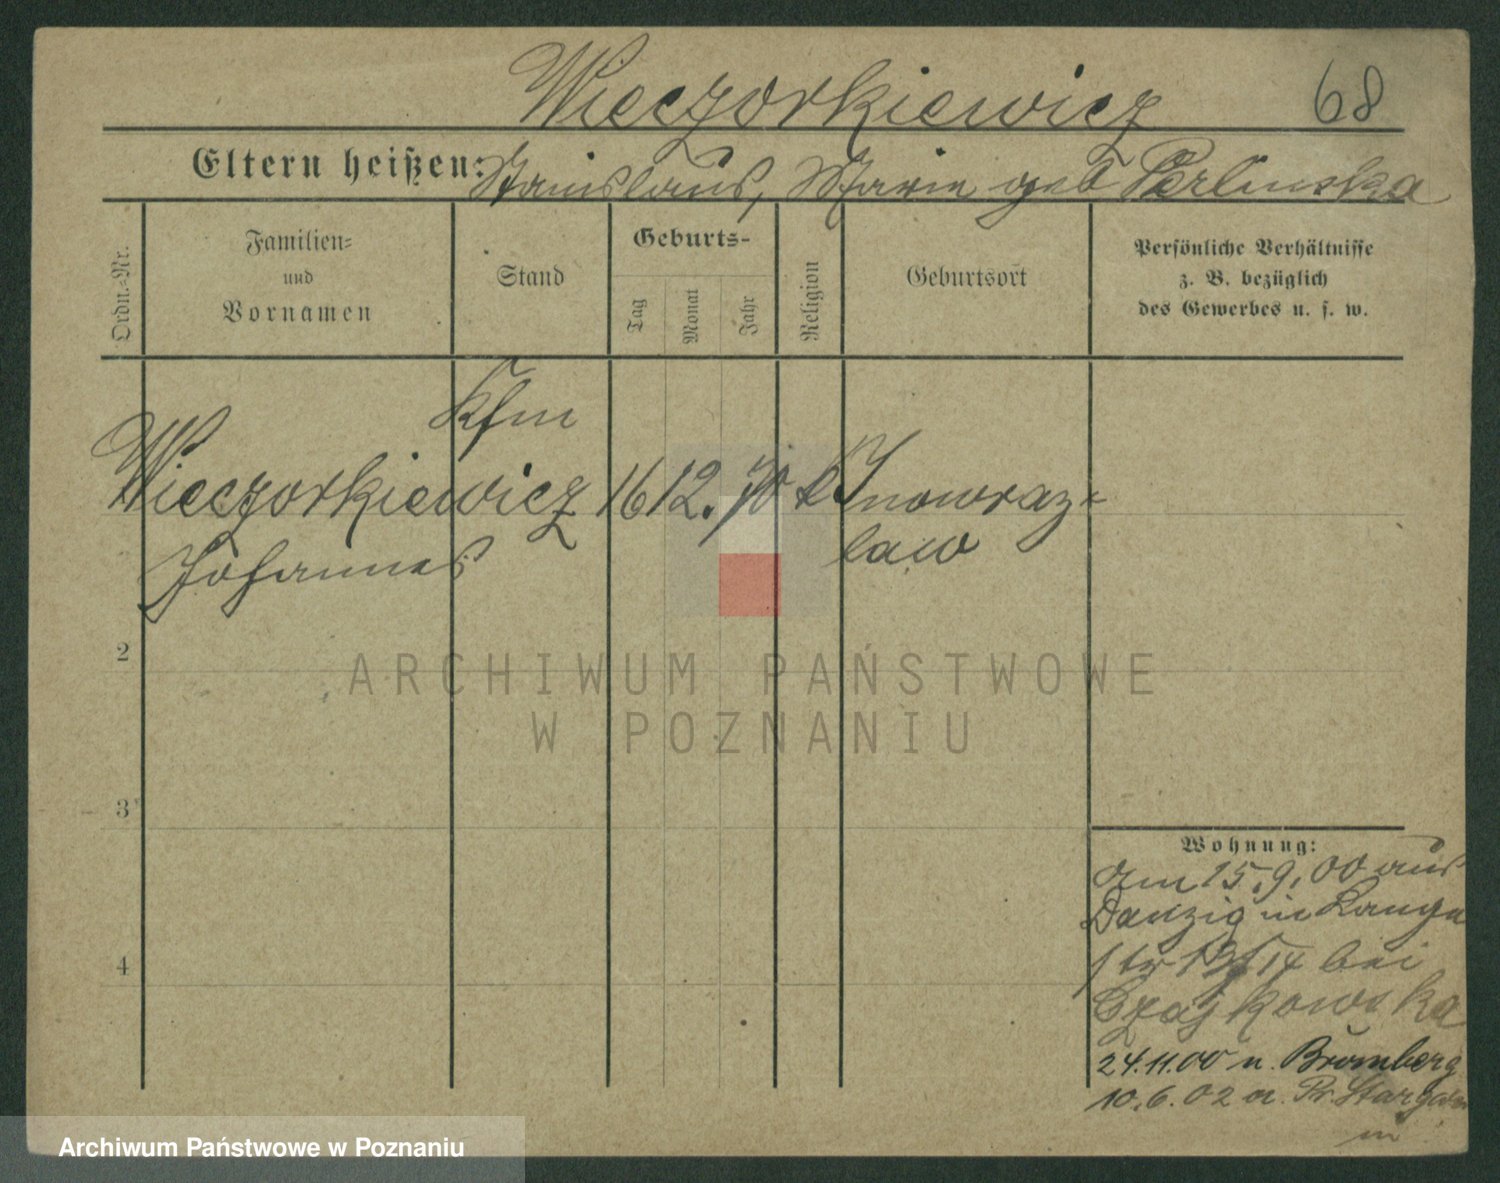 Wieczorkiewicz 68
Eltern heißen: Stanislaus, Marie geb Perlinska
Ordn.-Nr.
Familien-
und
Vornamen
Stand
Geburts-
Tag
Monat
Jahr
Religion
Geburtsort
Persönliche Verhältnisse
z. B. bezüglich
des Gewerbes u. s. w.
Kfm
Wieczorkiewicz 16 12. 70 k Inowraz-
Johannes law
2
ARCHIWUM PAŃSTWOWE
W POZNANIU
3
Wohnung:
am 15.9.00 aus
Danzig in Lange
str 14 bei
Czajkowska
4
24.11.00 n. Bromberg
10.6.02 a. Pr. Stargard
in
Archiwum Państwowe w Poznaniu